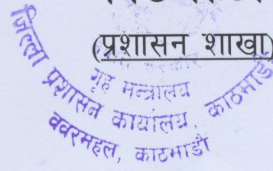 (प्रशासन शाखा)
गृह मन्त्रालय
जिल्ला प्रशासन कार्यालय, काठमाडौं
बबरमहल, काठमाडौं